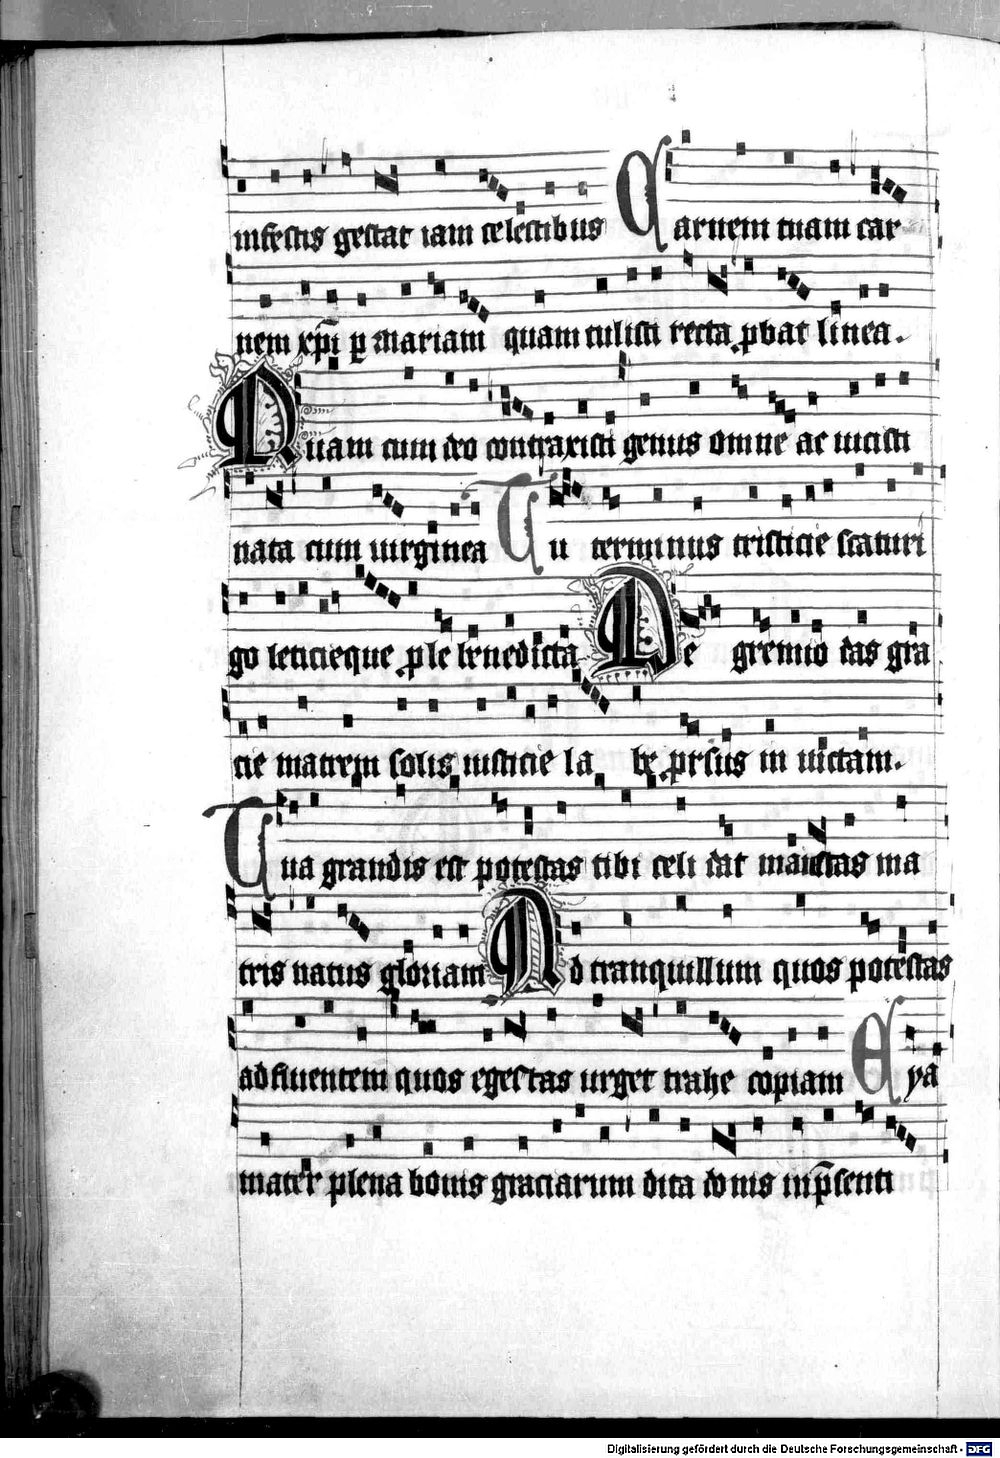 infestis gestat iam celestibus Carnem tuam car
nem xp̄i ꝑ mariam quam tulisti recta ꝓbat linea.
Quam cum deo contraxisti genus omne ac vicisti
nata cum virginea Tu terminus tristicie scaturi
go leticieque ꝓle benedicta De gremio das gra
cie matrem solis iusticie la be ꝓrsus in victam.
Tua grandis est potestas tibi celi dat maiestas ma
tris natus gloriam Ad tranquillum quos potestas
adfluentem quos egestas urget trahe copiam Eya
mater plena bonis graciarum dita donis in p̄senti
Digitalisierung gefördert durch die Deutsche Forschungsgemeinschaft - DFG